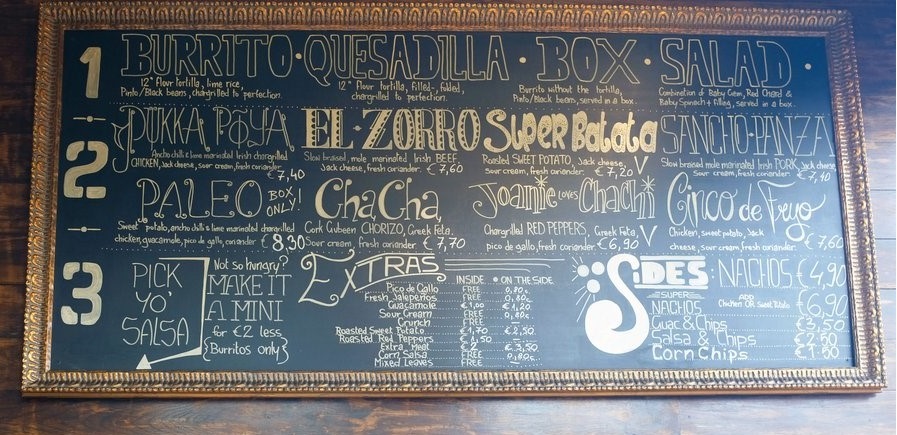 1 BURRITO · QUESADILLA · BOX · SALAD ·
12" flour tortilla, lime rice,
Pinto/Black beans, chargrilled to perfection.
12" flour tortilla, filled, folded,
chargrilled to perfection.
Burrito without the tortilla,
Pinto/Black beans, served in a box.
Combination of Baby Gem, Red Chard &
Baby Spinach + filling, served in a box.
2
PUKKA POYA
Ancho chilli & lime marinated Irish chargrilled
CHICKEN, jack cheese, sour cream, fresh coriander.
€ 7,40
EL·ZORRO
Slow braised, mole marinated Irish BEEF,
Jack cheese, fresh coriander. € 7,60
SUPER Batata
Roasted SWEET POTATO, Jack cheese,
Sour cream, fresh coriander. € 7,20 V
SANCHO-PANZA
Slow braised mole marinated Irish PORK, jack cheese,
sour cream, fresh coriander. € 7,40
PALEO BOX ONLY!
Sweet potato, ancho chilli & lime marinated chargrilled
chicken, guacamole, pico de gallo, coriander € 8.30
ChaCha
Cork Gubeen CHORIZO, Greek Feta,
Sour cream, fresh coriander € 7,70
Joanie loves Chachi
Chargrilled RED PEPPERS, Greek Feta,
pico de gallo, fresh coriander €6,90 V
Cinco de Fryo
Chicken, sweet potato, Jack
cheese, sour cream, fresh coriander. € 7,60
3
PICK
YO'
SALSA
Not so hungry?
MAKE IT
A MINI
for €2 less
{Burritos only}
EXTRAS
INSIDE • ON THE SIDE
Pico de Gallo FREE 0,80c
Fresh Jalapeños FREE 0,80c
Guacamole €1,00 €1,20
Sour Cream FREE 0,80c
Crunch FREE
Roasted Sweet Potato €1,70 €2,50
Roasted Red Peppers €1,50
Extra Meat €2 €3,50
Corn Salsa FREE 0,80c
Mixed Leaves FREE
SIDES
NACHOS €4,90
SUPER NACHOS ADD Chicken OR Sweet Potato €6,90
Guac & Chips €3,50
Salsa & Chips €2,50
Corn Chips €1.50